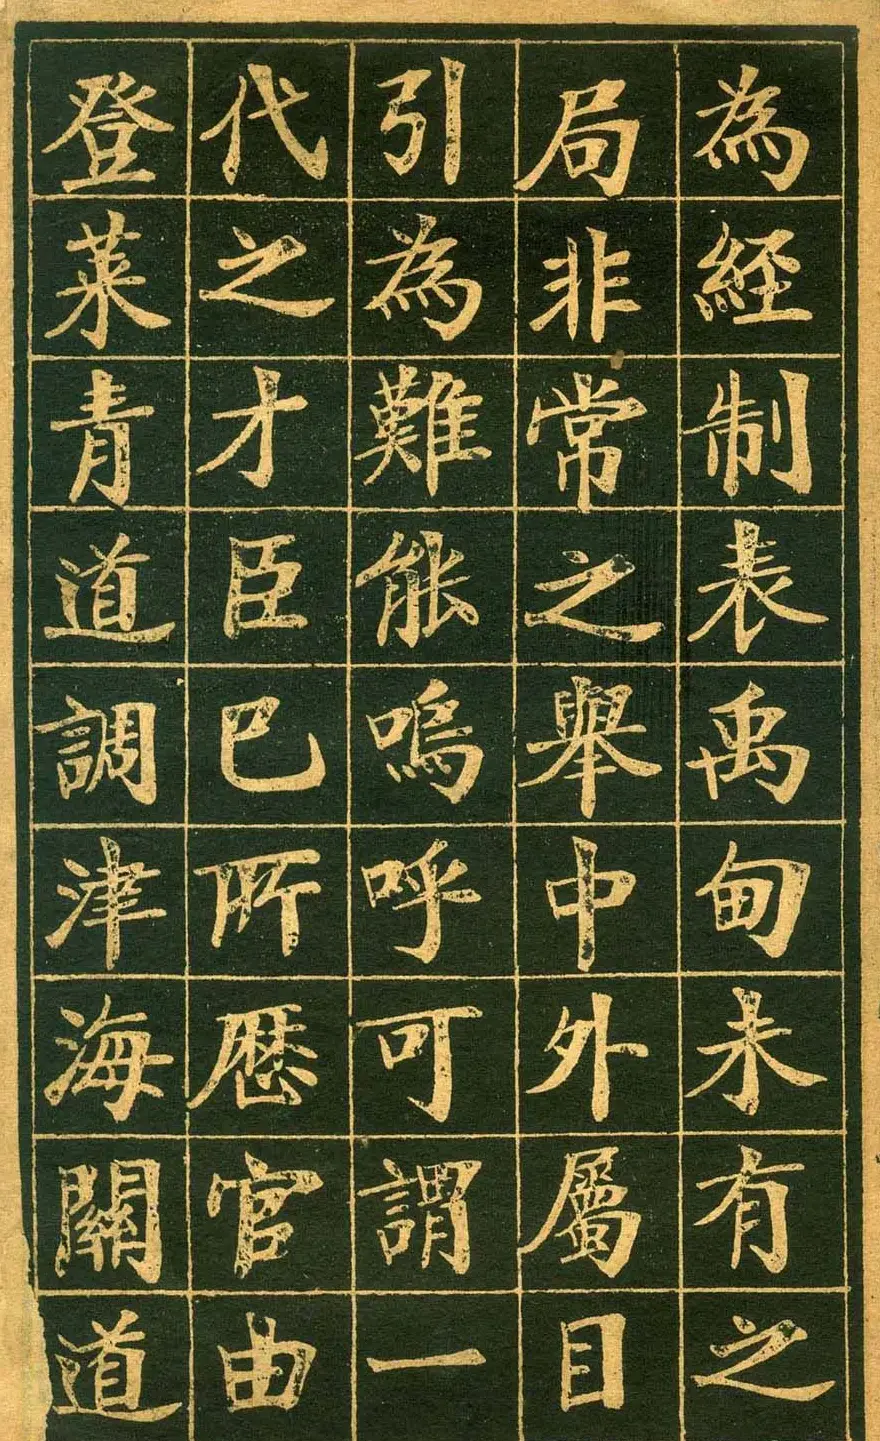 為經制表禹甸未有之
局非常之舉中外屬目
引為難能嗚呼可謂一
代之才臣已所歷官由
登萊青道調津海關道